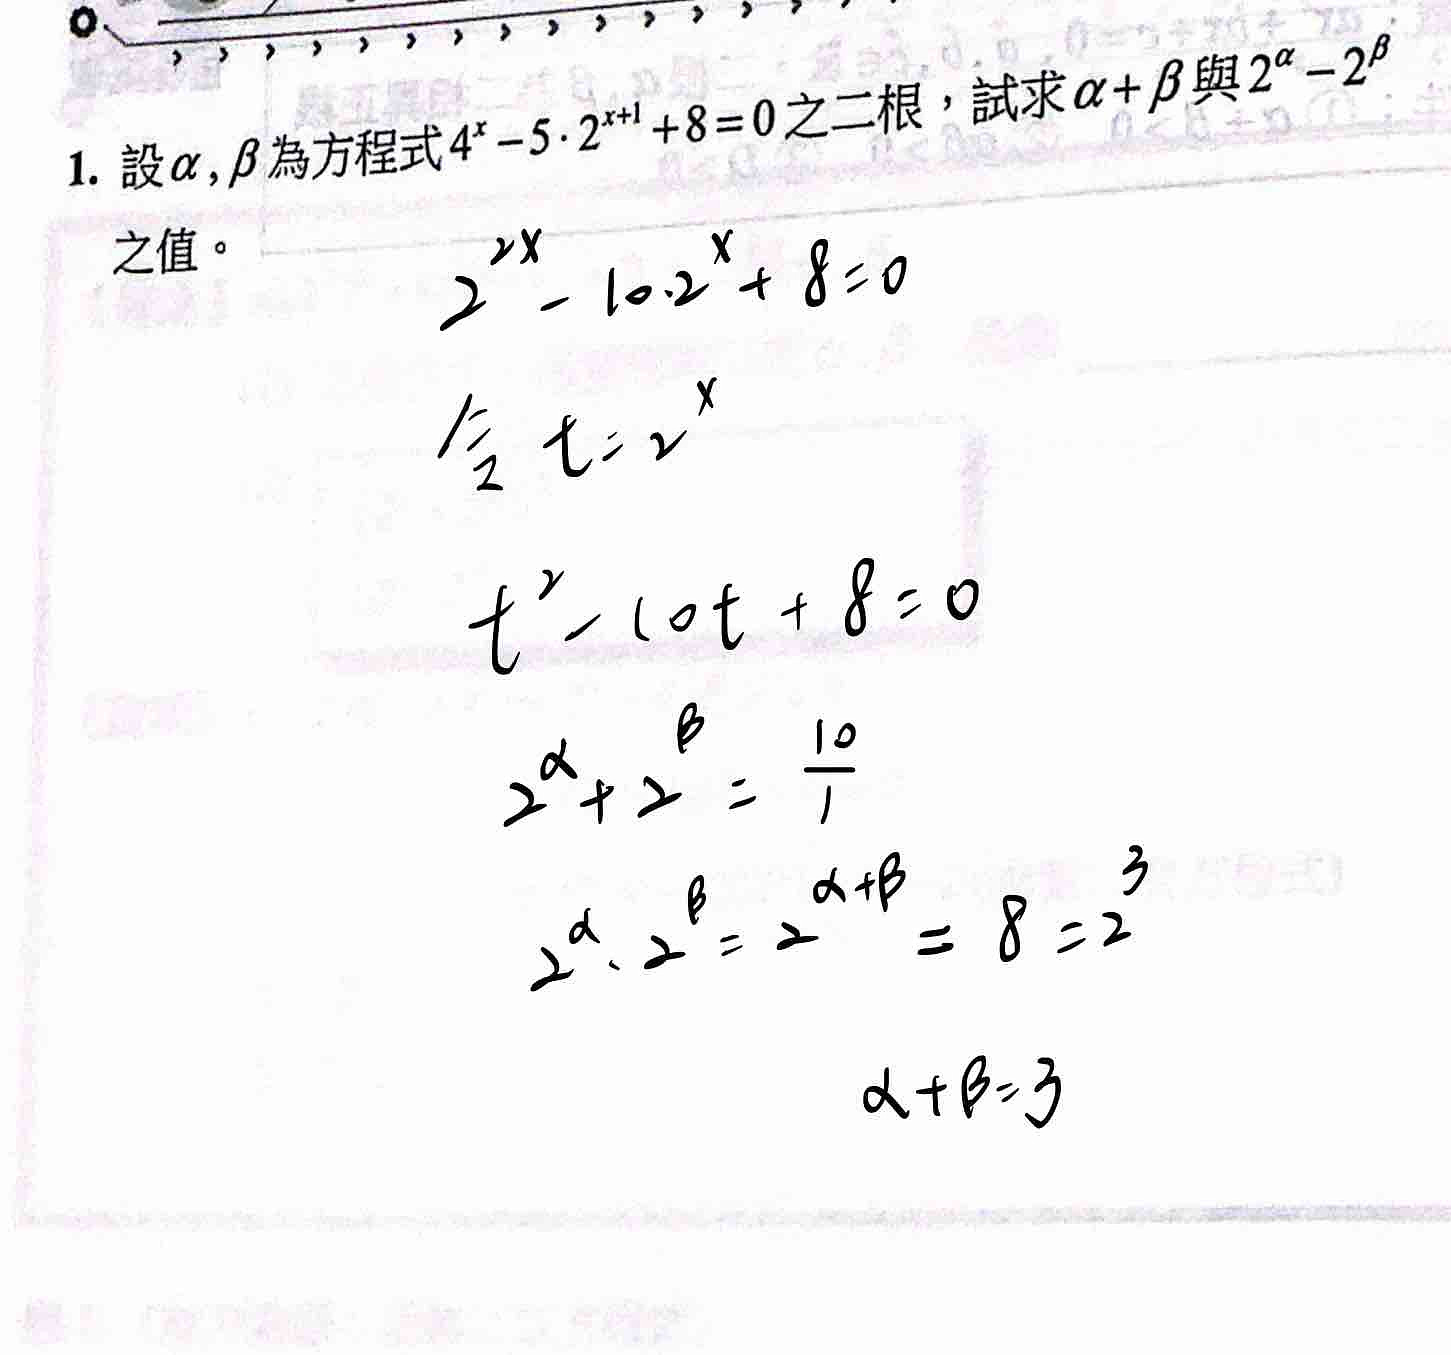 1. 設α, β為方程式4ˣ－5·2ˣ⁺¹＋8＝0之二根，試求α＋β與2^α－2^β
之值。
2^{2x} - 10·2^x + 8 = 0
令 t = 2^x
t² - 10t + 8 = 0
2^α + 2^β = 10/1
2^α · 2^β = 2^{α+β} = 8 = 2³
α + β = 3